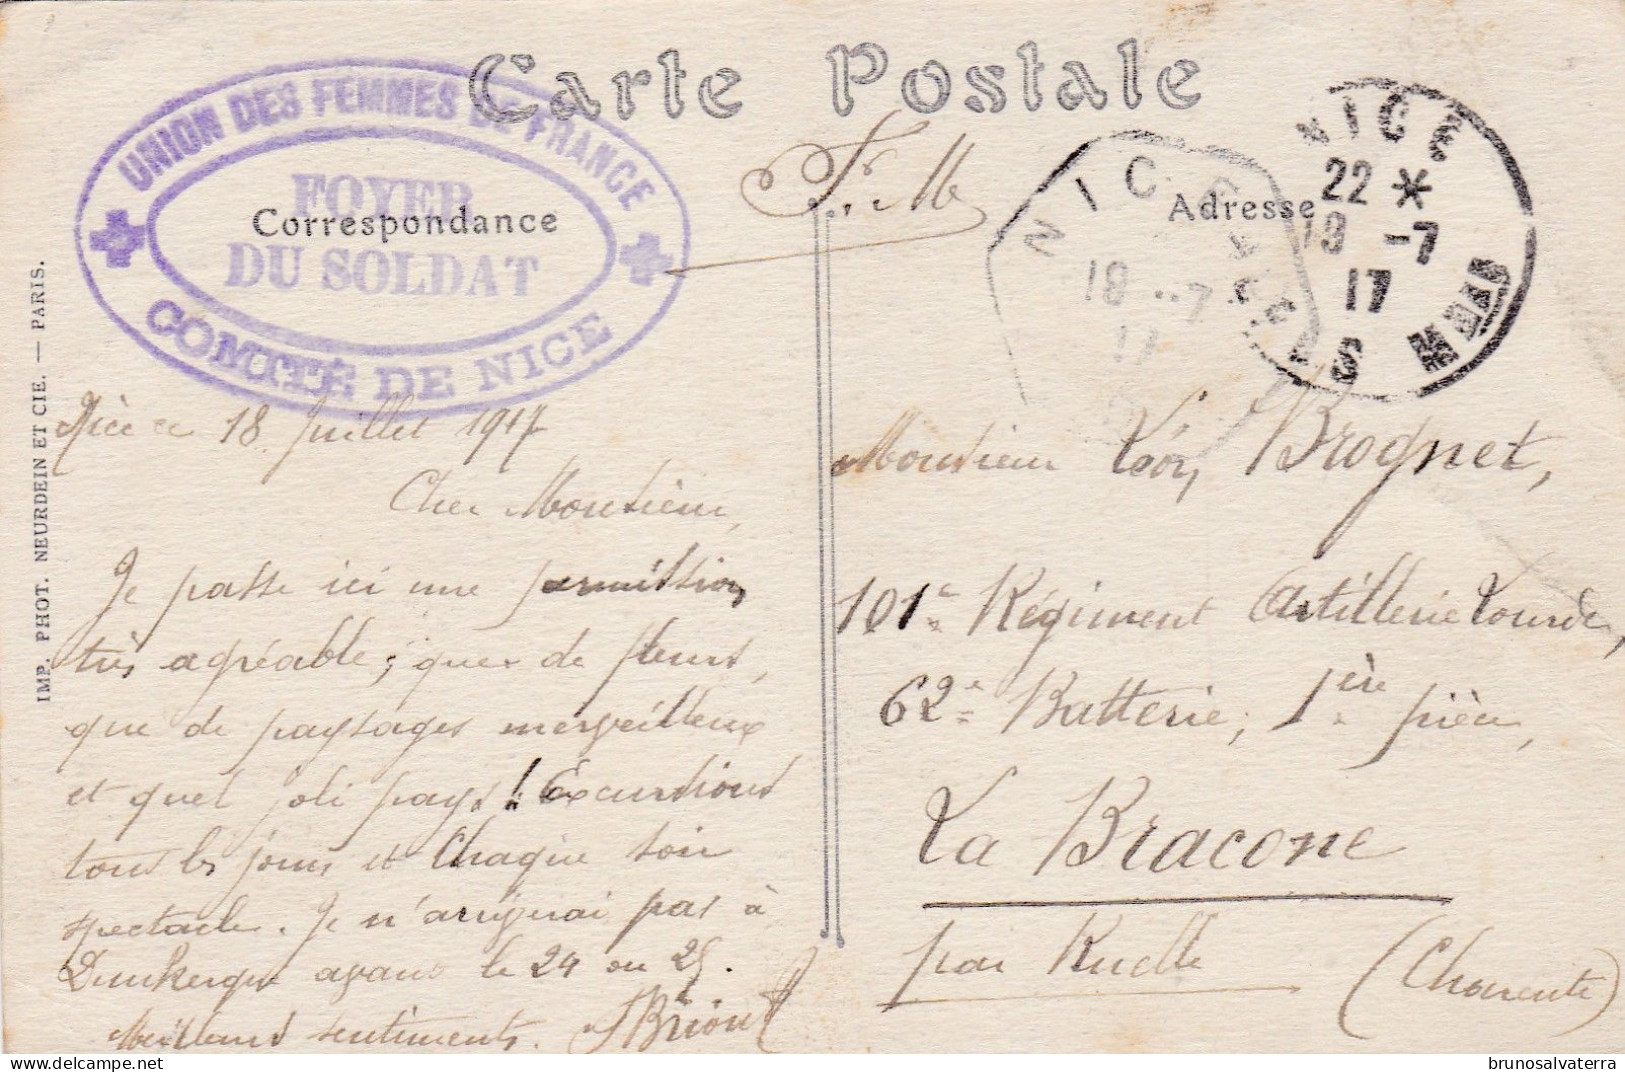 Carte Postale
UNION DES FEMMES DE FRANCE
FOYER
DU SOLDAT
COMITÉ DE NICE
Correspondance
Adresse
F. M.
NICE
18 -7
17
NICE
22 *
19 -7
17
IMP. PHOT. NEURDEIN ET CIE. — PARIS.
Nice ce 18 Juillet 1917
Cher Monsieur,
Je passe ici une permission
très agréable; que de fleurs,
que de paysages merveilleux
et quel joli pays! Excursions
tous les jours et chaque soir
spectacle. Je n'arriverai pas à
Dunkerque avant le 24 ou 25.
Meilleurs sentiments.
Monsieur Léon Brognet,
101e Régiment Artillerie Lourde,
62e Batterie, 1ère pièce,
La Bracone
par Ruelle
(Charente)
brunosalvaterra - delcampe.net